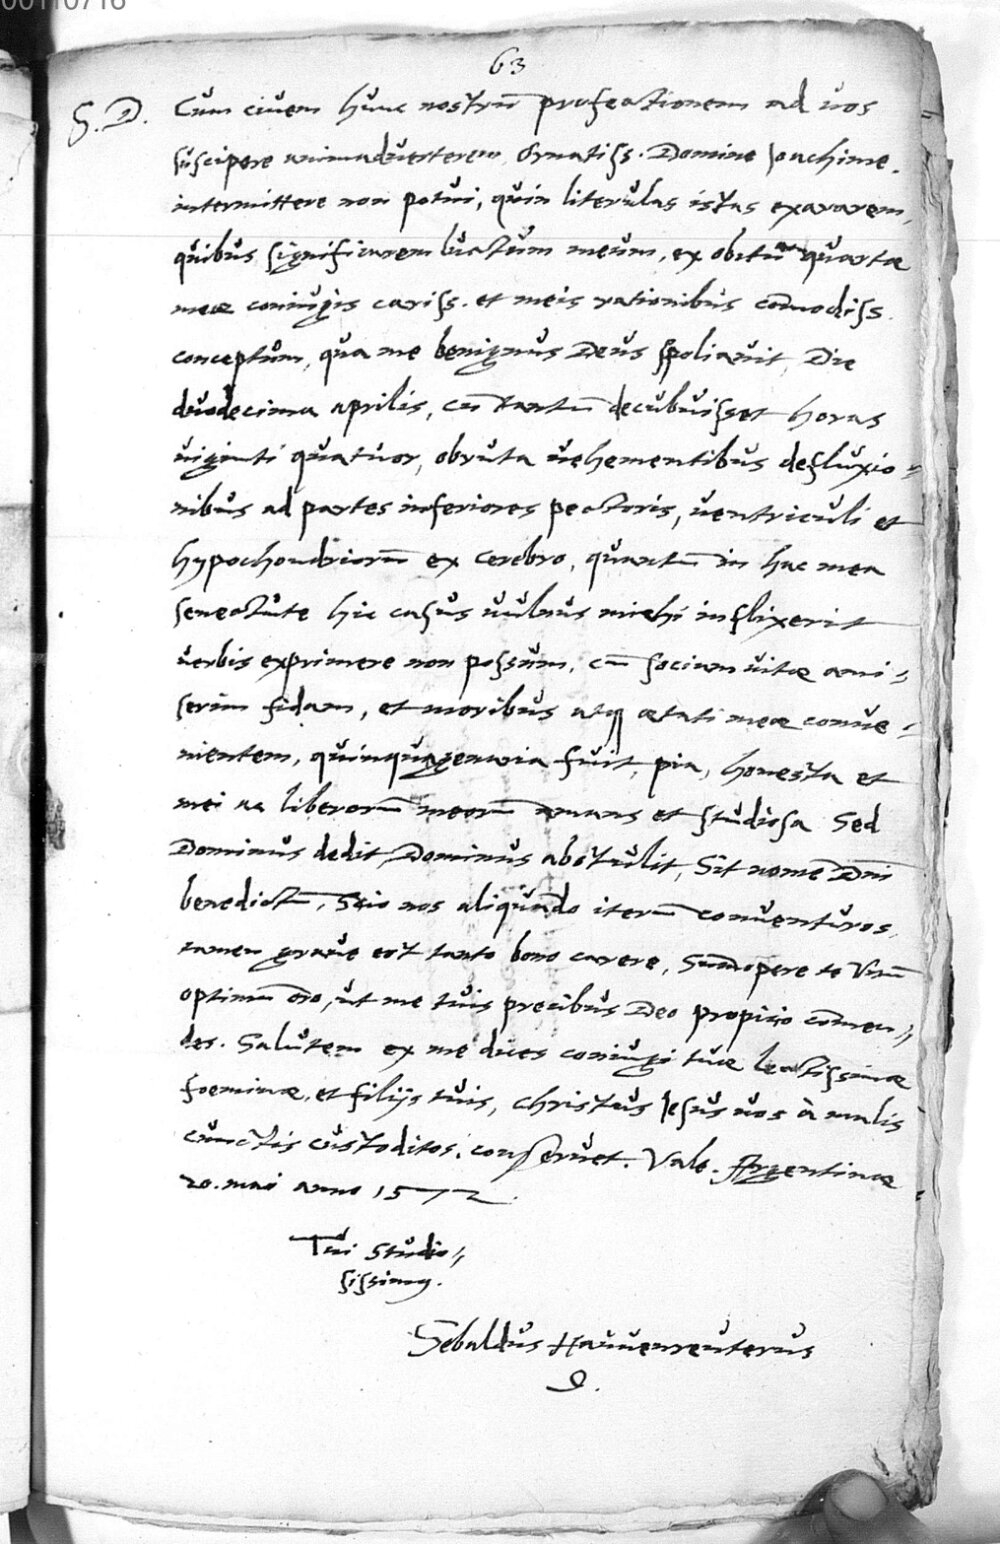 00110716
63
S. D. Cum ciuem hunc nostrū profectionem ad uos
suscipere animaduerterem, Ornatiss. Domine Ioachime,
intermittere non potui, quin literulas istas exararem,
quibus significarem luctum meum, ex obitu quartæ
meæ coniugis cariss. et meis rationibus com̄odiss.
conceptum, qua me benignus Deus spoliauit, Die
duodecima aprilis, cū tantū decubuisset horas
uiginti quatuor, obruta uehementibus defluxio⸗
nibus ad partes inferiores pectoris, uentriculi et
hypochondriorū ex cerebro, quantū in hac mea
senectute hic casus uulnus mihi inflixerit
uerbis exprimere non possum, cū sociam uitæ ami⸗
serim fidam, et moribus atq; ætati meæ conue⸗
nientem, quinquagenaria fuit, pia, honesta et
mei ac liberorū meorū amans et studiosa Sed
Dominus dedit, Dominus abstulit, Sit nomē Dn̄i
benedictū, Scio nos aliquando iterū conuenturos,
tamen graue est tanto bono carere, Sum̄opere te Virū
optimū oro, ut me tuis precibus Deo propitio com̄en⸗
des. Salutem ex me dices coniugi tuæ lectissimæ
foeminæ, et filijs tuis, Christus Iesus uos à malis
cunctis custoditos, conseruet. Vale. Argentinæ
20. maii anno 1572.
Tui Studio⸗
sissimꝰ.
Sebaldus Hauuenreuterus
D.